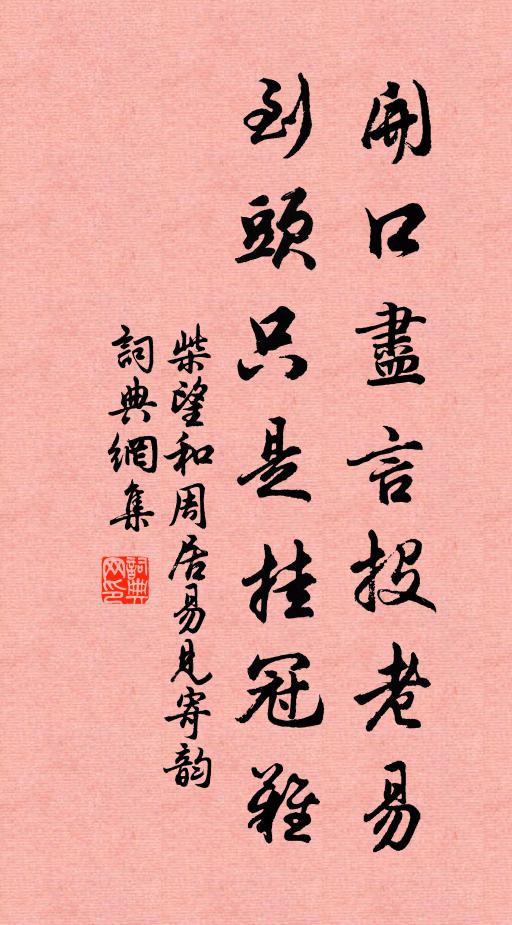 開口盡言投老易
到頭只是挂冠難
柴望和周居易見寄韵
詞典網集
詞典网印